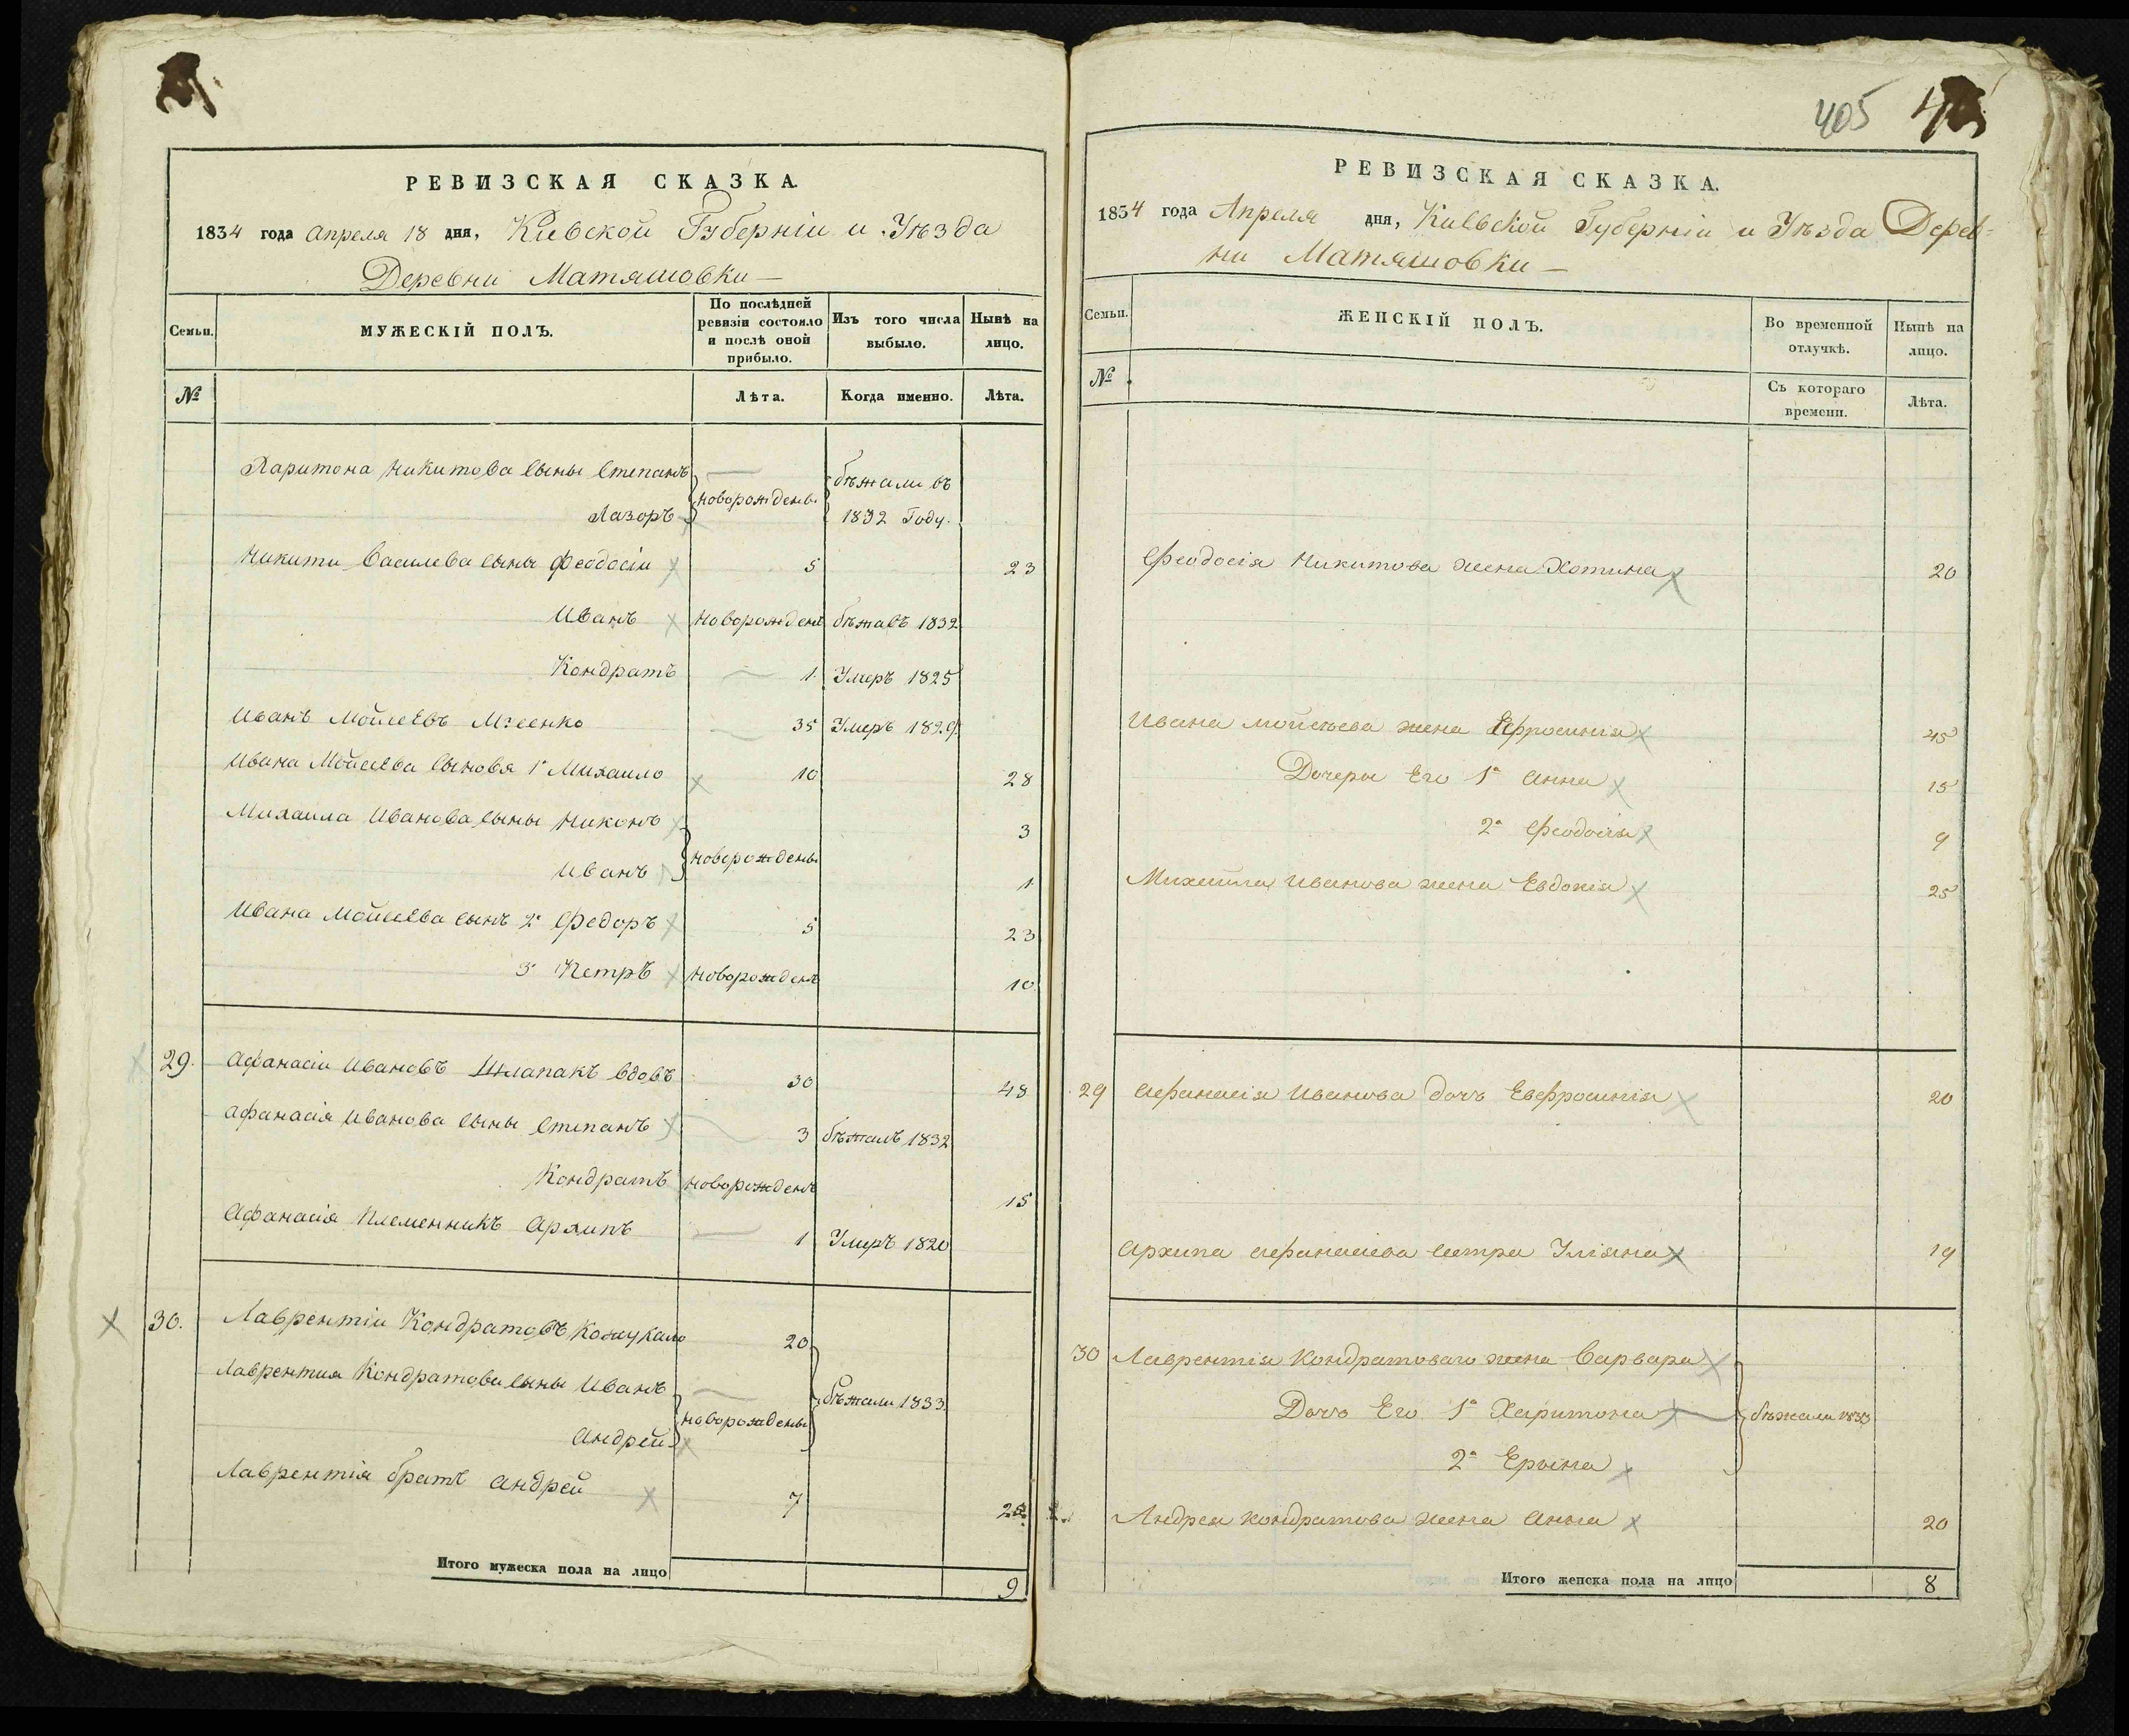 РЕВИЗСКАЯ СКАЗКА.
1834 года Апреля 18 дня, Кіевской Губерніи и Уѣзда
Деревни Матяшовки —
Семьи.
МУЖЕСКІЙ ПОЛЪ.
По послѣдней ревизіи состояло и послѣ оной прибыло.
Изъ того числа выбыло.
Нынѣ на лицо.
№
Лѣта.
Когда именно.
Лѣта.
Харитона Никитова сыны Степанъ
Лазоръ
новорождены
бѣжали въ
1832 Году.
Никити Василева сыны Феодосіи 5 23
Иванъ новорожденъ бѣжавъ 1832
Кондратъ 1. Умеръ 1825
Иванъ Мойсеевъ 35 Умеръ 1829.
Ивана Мойсеева сыновя 1й Михаило 10 28
Михаила Иванова сыны Никонъ 3
Иванъ новорождены 1
Ивана Мойсеева сынъ 2й Федоръ 5 23
3й Петръ новорожденъ 10
29. Афанасіи Ивановъ Шлапакъ вдовъ 30 48
Афанасія Иванова сыны Степанъ 3 бѣжалъ 1832
Кондратъ новорожденъ 15
Афанасія племенникъ Архипъ 1 Умеръ 1820
30. Лаврентіи Кондратовъ 20
Лаврентия Кондратова сыны Иванъ
новорождены бѣжали 1833.
Андрей
Лаврентія братъ Андрей 7 25
Итого мужеска пола на лицо 9
405
РЕВИЗСКАЯ СКАЗКА.
1834 года Апреля дня, Кіевской Губерніи и Уѣзда Дерев=
ни Матяшовки —
Семьи.
ЖЕНСКІЙ ПОЛЪ.
Во временной отлучкѣ.
Нынѣ на лицо.
№
Съ котораго времени.
Лѣта.
Феодосія Никитова жена Хотина 20
Ивана Мойсѣева жена Ефросинія 45
Дочеры Его 1я Анна 15
2я Феодосія 9
Михайла Иванова жена Евдокія 25
29 Афанасія Иванова дочь Евфросинія 20
Архипа Афанасіева сестра Уліяна 19
30 Лаврентія Кондратоваго жена Варвара
Дочь Его 1я Харитона бѣжали 1833
2я Ерина
Андрея Кондратова жена Анна 20
Итого женска пола на лицо 8